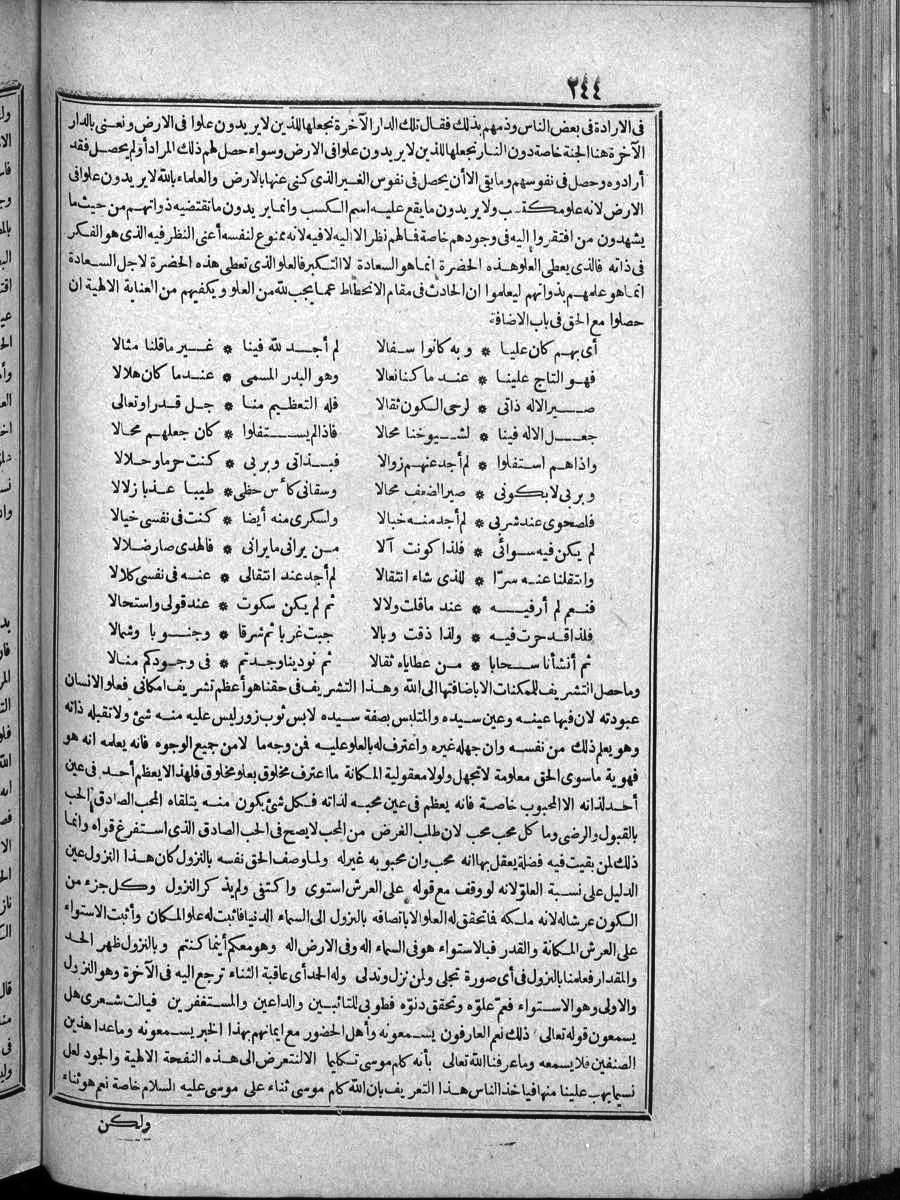 ٢٤٤
فى الارادة فى بعض الناس وذمهم بذلك فقال تلك الدار الآخرة نجعلها للذين لا يريدون علوا فى الارض ونعنى بالدار
الآخرة هنا الجنة خاصة دون النار نجعلها للذين لا يريدون علوا فى الارض وسواء حصل لهم ذلك المراد أو لم يحصل فقد
أرادوه وحصل فى نفوسهم وما بقى الا أن يحصل فى نفوس الغير الذى كنى عنها بالارض والعلماء بالله لا يريدون علوا فى
الارض لانه علو مكتسب ولا يريدون ما يقع عليه اسم الكسب وانما يريدون ما تقتضيه ذواتهم من حيث ما
يشهدون من افتقروا اليه فى وجودهم خاصة فالهم نظر الا اليه لا فيه لانه ممنوع لنفسه أعنى النظر فيه الذى هو الفكر
فى ذاته فالذى يعطى العلو هذه الحضرة انما هو السعادة لا التكبر فالعلو الذى تعطى هذه الحضرة لاجل السعادة
انما هو علمهم بذواتهم ليعلموا ان الحادث فى مقام الانحطاط عما يجب لله من العلو ويكفيهم من العناية الالهية ان
حصلوا مع الحق فى باب الاضافة
أى بهم كان عليا * وبه كانوا سفالا لم أجد لله فينا * غير ما قلنا مثالا
فهو التاج علينا * عندما كنا نعالا وهو البدر المسمى * عندما كان هلالا
صير الاله ذاتى * لرحى الكون ثقالا فله التعظيم منا * جل قدرا وتعالى
جعل الاله فينا * لشيوخنا محالا فاذا لم يستفلوا * كان جعلهم محالا
واذا هم استفلوا * لم أجد عنهم زوالا فبذاتى وبربى * كنت حرما وحلالا
وبربى لا بكونى * صير الضعف محالا وسقانى كأس حظى * طيبا عذبا زلالا
فلصحوى عند شربى * لم أجد منه خبالا ولسكرى منه أيضا * كنت فى نفسى خيالا
لم يكن فيه سوائى * فلذا كونت آلا من يرانى ما يرانى * فالهدى صار ضلالا
وانتقلنا عنه سرّا * للذى شاء انتقالا لم أجد عند انتقالى * عنه فى نفسى كلالا
فنعم لم أر فيه * عند ما قلت ولالا ثم لم يكن سكوت * عند قولى واستحالا
فلذا قد حرت فيه * ولذا ذقت وبالا جبت غربا ثم شرقا * وجنوبا وشمالا
ثم أنشأنا سحابا * من عطاياه ثقالا ثم نودينا وجدتم * فى وجودكم منالا
وما حصل التشريف للممكنات الا باضافتها الى الله وهذا التشريف فى حقنا هو أعظم تشريف امكانى فعلو الانسان
عبودته لان فيها عينه وعين سيده والمتلبس بصفة سيده لابس ثوب زور ليس عليه منه شئ ولا تقبله ذاته
وهو يعلم ذلك من نفسه وان جهله غيره واعترف له بالعلو عليه فمن وجه ما لا من جميع الوجوه فانه يعلمه انه هو
فهوية ما سوى الحق معلومة لا تجهل ولولا معقولية المكانة ما اعترف مخلوق بعلو مخلوق فلهذا لا يعظم أحد فى عين
أحد لذاته الا المحبوب خاصة فانه يعظم فى عين محبه لذاته فكل شئ يكون منه يتلقاه المحب الصادق الحب
بالقبول والرضى وما كل محب محب لان طلب الغرض من المحب لا يصح فى الحب الصادق الذى استفرغ قواه وانما
ذلك لمن بقيت فيه فضلة يعقل بها انه محب وان محبوبه غير له ولما وصف الحق نفسه بالنزول كان هذا النزول عين
الدليل على نسبة العلوّ لانه لو وقف مع قوله على العرش استوى واكتفى ولم يذكر النزول وكل جزء من
الكون عرش له لانه ملكه فما تحقق له العلو الا باتصافه بالنزول الى السماء الدنيا فاثبت له علو المكان وأثبت الاستواء
على العرش المكانة والقدر فبالاستواء هو فى السماء اله وفى الارض اله وهو معكم أينما كنتم وبالنزول ظهر الحد
والمقدار فعلمنا بالنزول فى أى صورة تجلى ولمن نزل وتدلى وله الحمد أى عاقبة الثناء ترجع اليه فى الآخرة وهو النزول
والاولى وهو الاستواء فعمّ علوّه وتحقق دنوّه فطوبى للتائبين والداعين والمستغفرين فياليت شعرى هل
يسمعون قوله تعالى ذلك نعم العارفون يسمعونه وأهل الحضور مع ايمانهم بهذا الخبر يسمعونه وما عدا هذين
الصنفين فلا يسمعه وما عرفنا الله تعالى بأنه كلم موسى تكليما الا لنتعرض الى هذه النفحة الالهية والجود لعل
نسيما يهب علينا منها فياخذ الناس هذا التعريف بان الله كلم موسى ثناء على موسى عليه السلام خاصة نعم هو ثناء
ولكن